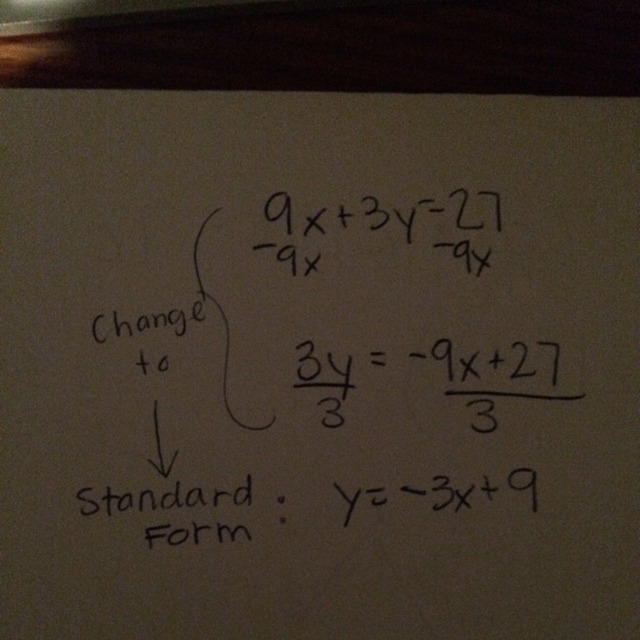 9x+3y=27
-9x -9x
Change
to
3y = -9x+27
3 3
Standard
Form : y=-3x+9